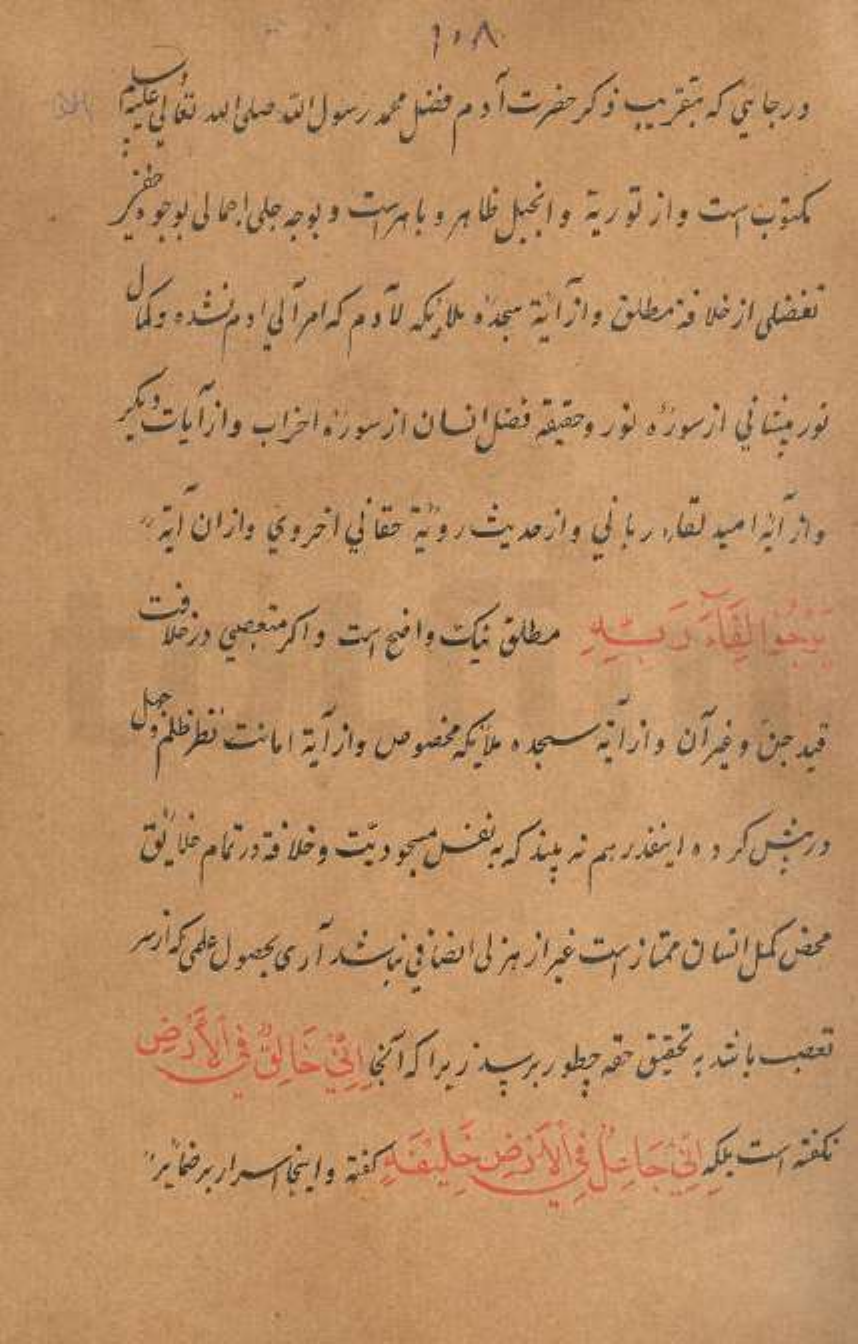 ١٠٨
در جایی که بتقریب ذکر حضرت آدم فضل محمد رسول الله صلی الله تعالی علیه وسلم
مکتوب است و از توریة و انجیل ظاهر و باهر است و بوجه جلی اجمالی بوجوه
تفضلی از خلافة مطلق و از آیة سجدۀ ملایکه لآدم که امر آلی ادم نشده و کمال
نور پیشانی از سورۀ نور و حقیقة فضل انسان از سورۀ احزاب و از آیات دیگر
و از آیۀ امید لقاء ربانی و از حدیث رؤیة حقانی اخروی و ازان آیة
یَرْجُوا لِقَآءَ رَبِّهِ مطلق نیک واضح است و اکر متعصبی در خلافت
قید جن و غیر آن و از آیۀ سجده ملایکه مخصوص و از آیة امانت نظر ظلم و جهل
در پیش کرده اینقدر هم نه بیند که به نفس مسجودیت و خلافة در تمام خلایق
محض کمل انسان ممتاز است غیر از هزلی انصافی نباشد آری بحصول علمی که از سر
تعصب باشد به تحقیق حقه چطور برسد زیرا که آنجا اِنِّیْ خَالِقٌ فِی الْاَرْضِ
نکفته است بلکه اِنِّیْ جَاعِلٌ فِی الْاَرْضِ خَلِیْفَةِ کفته و اینجا اسرار بر ضمایر